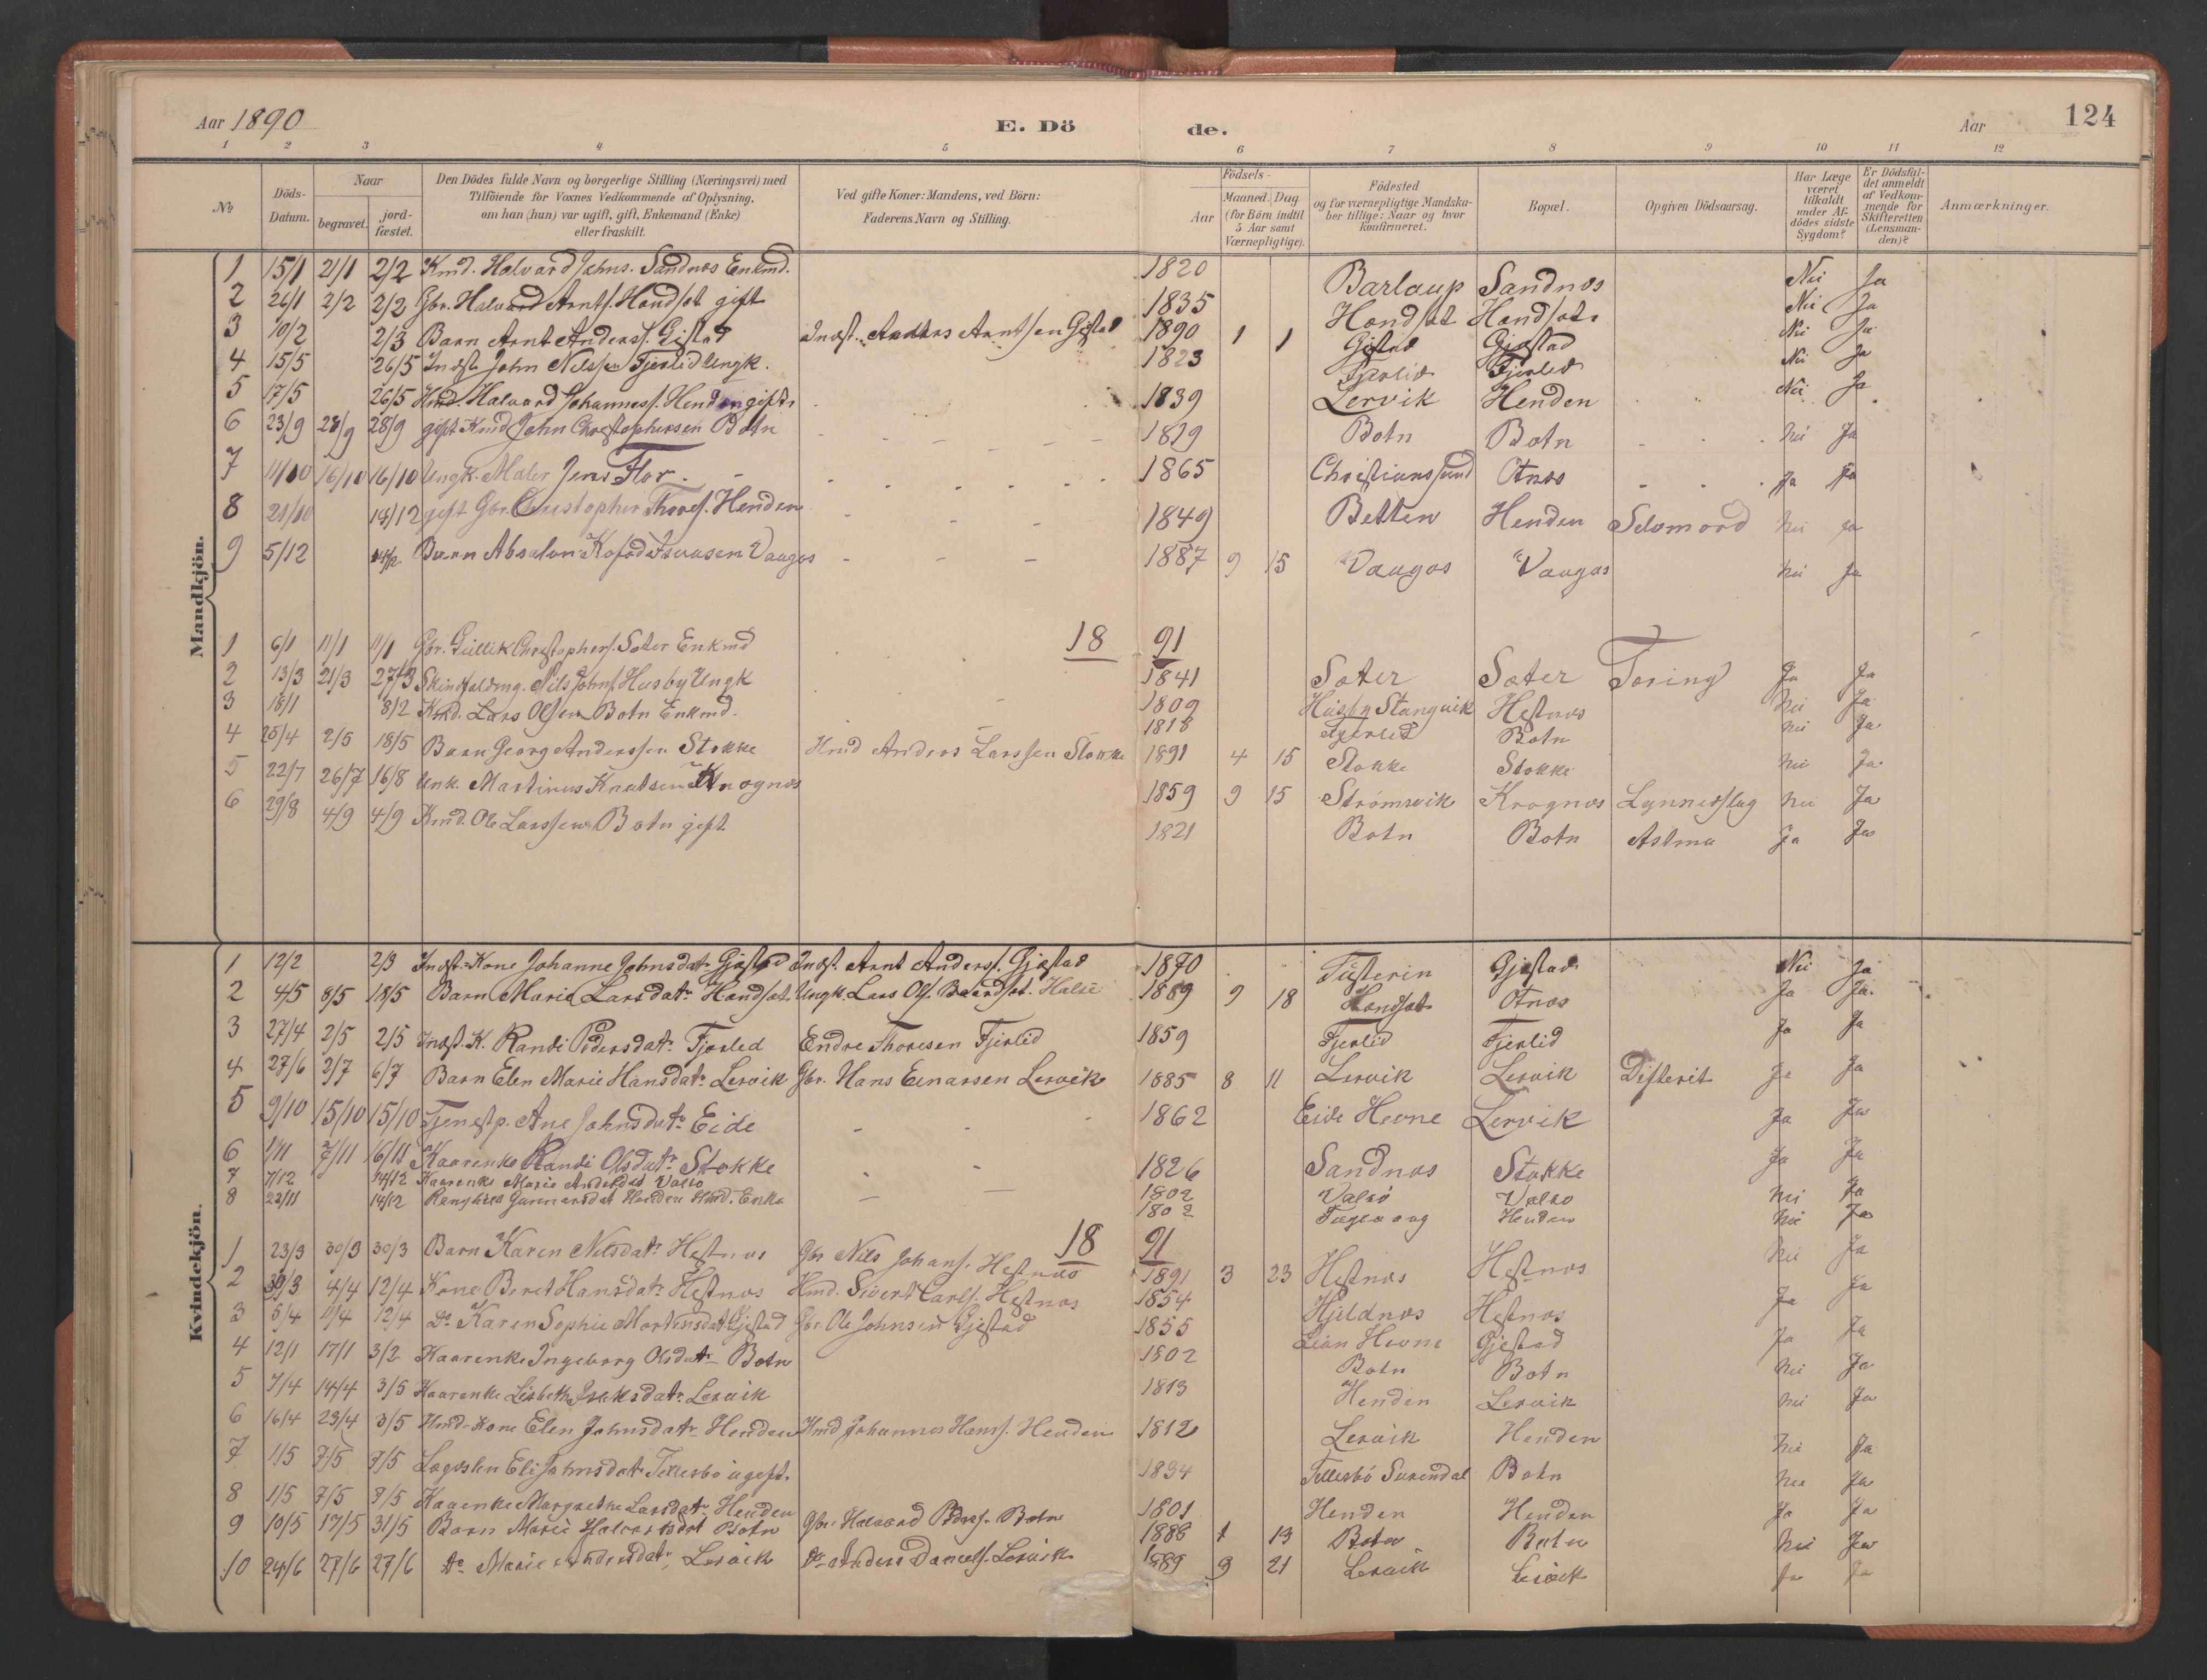 Aar 1890
E. Dö de.
Aar
124
1 2 3 4 5 6 7 8 9 10 11 12
№
Döds-Datum.
Naar
begravet.
jord-fæstet.
Den Dödes fulde Navn og borgerlige Stilling (Næringsvei) med Tilföiende for Voxnes Vedkommende af Oplysning, om han (hun) var ugift, gift, Enkemand (Enke) eller fraskilt.
Ved gifte Koner: Mandens, ved Börn: Faderens Navn og Stilling.
Födsels-
Aar
Maaned. Dag.
(for Börn indtil 5 Aar samt Værnepligtige).
Födested og for værnepligtige Mandskaber tillige: Naar og hvor konfirmeret.
Bopæl.
Opgiven Dödsaarsag.
Har Læge været tilkaldt under Afdödes sidste Sygdom?
Er Dödsfaldet anmeldt af Vedkommende for Skifteretten (Lensmanden)?
Anmærkninger.
Mandkjön.
1 15/1 21/1 2/2 Kmd. Halvard Johns. Sandnes Enkmd. 1820 Barlaup Sandnes Nei Ja
2 24/1 2/2 2/2 Gbr. Halvard Arnts. Handsat gift 1835 Handsat Handsat Nei Ja
3 10/2 2/3 Barn Arnt Anders. Gistad Indst. Anders Arntsen Gistad 1890 1 1 Gistad Gjestad Nei Ja
4 15/5 26/5 Indst. John Nilssen Fjerlid Ungk. 1823 Fjerlid Fjerlid Nei Ja
5 17/5 26/5 Hmd. Halvard Johanness. Henden gift 1839 Lervik Henden Nei Ja
6 23/9 28/9 28/9 gift Kmd John Christophersen Botn 1819 Botn Botn Nei Ja
7 11/10 16/10 16/10 Ungk. Maler Jens Flor. 1865 Christianssund Otnes Ja Ja
8 21/10 14/12 gift Gbr. Christopher Thores. Henden 1849 Betten Henden Selvmord Nei Ja
9 5/12 14/12 Barn Absalon Kofod Vaagos 1887 9 15 Vaagos Vaagos Nei Ja
18 91
1 6/1 11/1 11/1 Gbr. Gullik Christophers. Sæter Enkmd 1841 Sæter Sæter Tæring Ja Ja
2 13/3 21/3 27/3 Nils Johns. Husby Ungk 1809 Husby Stangvik Hestnes Nei Ja
3 18/1 8/2 Kmd. Lars Olsen Botn Enkmd. 1818 Fjerlid Botn Nei Ja
4 25/4 2/5 18/5 Barn Georg Anderssen Stokke Hmd Anders Larssen Stokke 1891 4 15 Stokke Stokke Nei Ja
5 22/7 26/7 16/8 Unk. Martinus Knutsen Krognes 1859 9 15 Strömsvik Krognes Lynnedslag Nei Ja
6 29/8 4/9 4/9 Kmd. Ole Larssen Botn gift 1821 Botn Botn Astma Ja Ja
Kvindekjön.
1 12/2 2/3 Indst-Kone Johanne Johnsdatr Gjestad Indst. Arnt Anders. Gjestad 1870 Tusterin Gjestad Nei Ja
2 4/5 8/5 18/5 Barn Marie Larsdatr Handsat Ungk. Lars Ols. Halse 1889 9 18 Handsat Otnes Ja Ja
3 27/4 2/5 2/5 Indst. K. Randi Pedersdatr Fjerled Endre Thoresen Fjerlid 1859 Fjerlid Fjerlid Ja Ja
4 27/6 2/7 6/7 Barn Elen Marie Hansdatr Lervik Gbr. Hans Einarsen Lervik 1885 8 11 Lervik Lervik Difterit Ja Ja
5 9/10 15/10 15/10 Tjenestp. Ane Johnsdatr Eide 1862 Eide Hevne Lervik Ja Ja
6 1/11 7/11 16/11 Kaarenke Randi Olsdatr Stokke 1826 Sandnes Stokke Ja Ja
7 7/12 14/12 Kaarenke Marie Andersdat Valsö 1802 Valsö Valsö Nei Ja
8 23/11 14/12 Ranghild Gunnarsdat Henden Hmd. Enke 1802 Fugevaag Henden Nei Ja
18 91
1 23/3 30/3 30/3 Barn Karen Nilsdatr Hestnes Gbr Nils Johans. Hestnes 1891 3 23 Hestnes Hestnes Nei Ja
2 30/3 4/4 12/4 Kone Beret Hansdatr Hestnes Hmd. Sivert Carls. Hestnes 1854 Hjeldnes Hestnes Ja Ja
3 5/4 11/4 12/4 Do Karen Sophie Mortensdat Gjestad Gbr. Ole Johnsen Gjestad 1855 Hevne Gjestad Ja Ja
4 12/1 17/1 3/2 Kaarenke Ingeborg Olsdatr Botn 1802 Botn Botn Nei Ja
5 7/4 14/4 3/5 Kaarenke Lisbeth Iseksdatr Lervik 1813 Henden Lervik Nei Ja
6 16/4 23/4 3/5 Hmd-Kone Elen Johnsdatr Henden Hmd Johannes Hans. Henden 1812 Lervik Henden Nei Ja
7 1/5 7/5 3/5 Lægdslem Eli Johnsdatr Tellesbö ugift. 1834 Tellesbö Surendal Botn Nei Ja
8 1/5 7/5 3/5 Kaarenke Margrethe Larsdatr Henden 1801 Henden Henden Ja Ja
9 10/5 17/5 31/5 Barn Marie Halvarsdat Botn Gbr. Halvard Peders. Botn 1888 1 13 Botn Botn Nei Ja
10 24/6 27/6 27/6 Do Marie Andersdatr Lervik Do Anders Daniels. Lervik 1889 9 21 Lervik Lervik Ja Ja